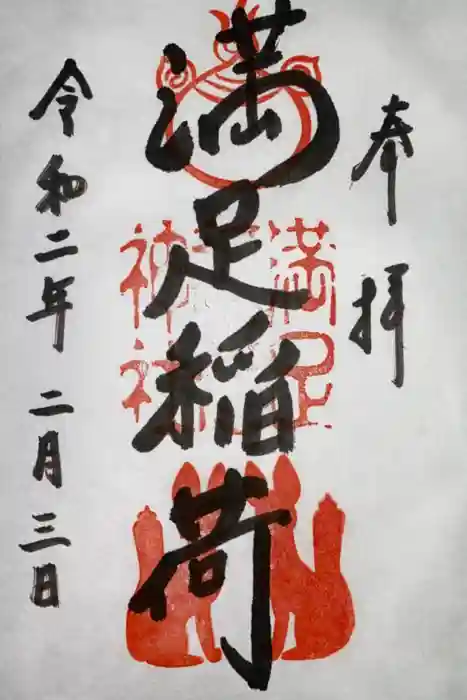 奉拝
満足稲荷
満足稲荷神社
令和二年二月三日